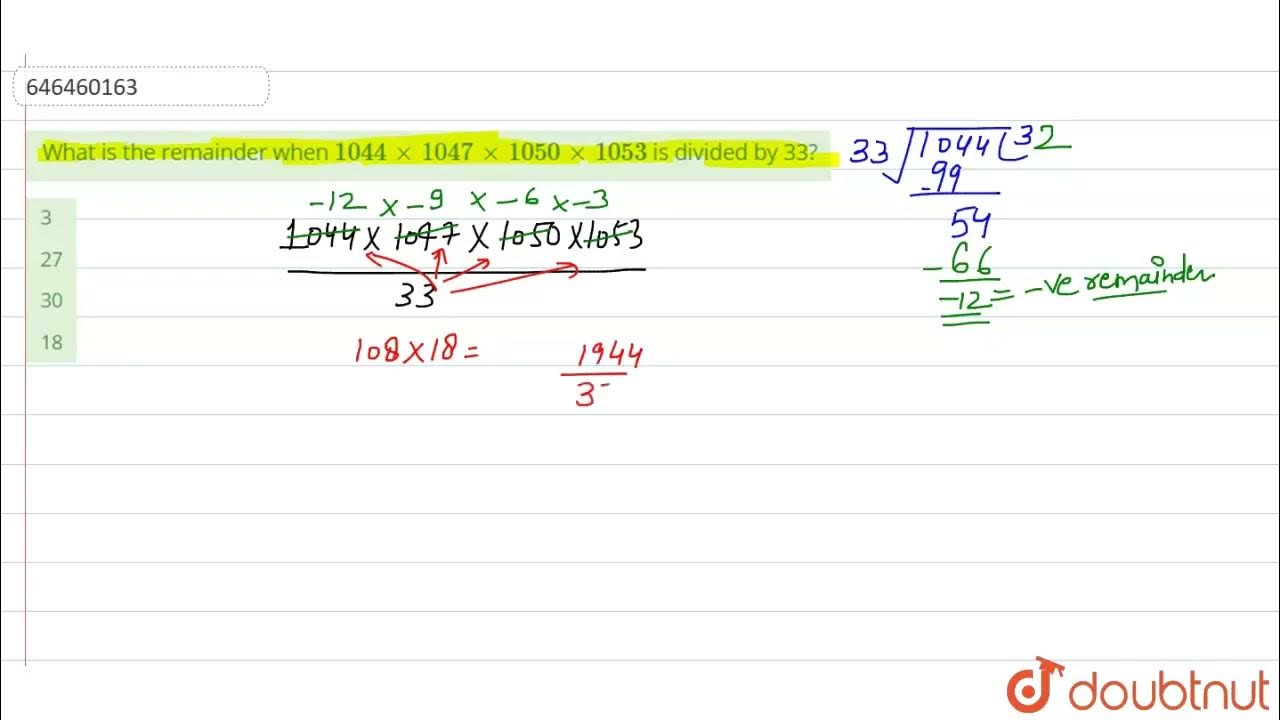 646460163
What is the remainder when 1044 × 1047 × 1050 × 1053 is divided by 33?
3
27
30
18
-12 × -9 × -6 × -3
1044 × 1047 × 1050 × 1053
33
108 × 18 =
1944
3
33 1044 32
-99
54
-66
-12 = -ve remainder
doubtnut